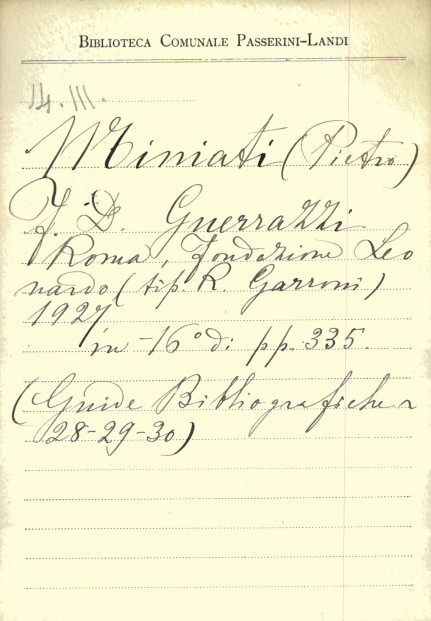 BIBLIOTECA COMUNALE PASSERINI-LANDI
14.III.
Miniati (Pietro)
F. D. Guerrazzi
Roma, Fondazione Leo
nardo (tip. R. Garroni)
1927
in-16° di pp. 335.
(Guide Bibliografiche
28-29-30)